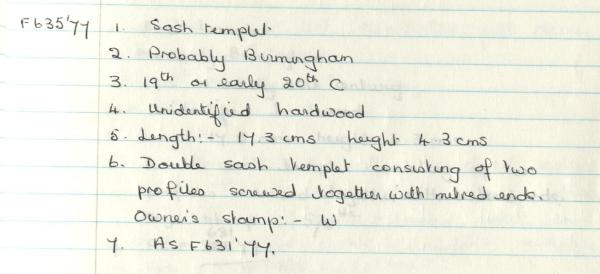 F635'77 1. Sash templet.
2. Probably Birmingham
3. 19th or early 20th C
4. Unidentified hardwood
5. Length:- 17.3 cms height 4.3 cms
6. Double sash templet consisting of two
profiles screwed together with mitred ends.
Owner's stamp:- W
7. As F631'77.